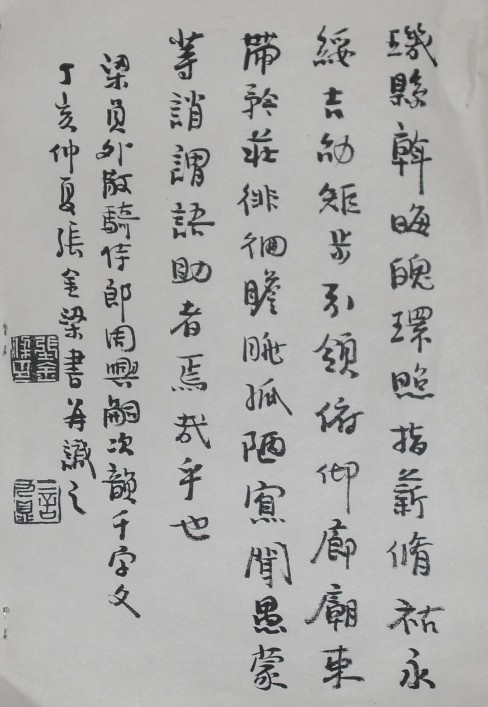 璣縣斡晦魄環照指薪脩祜永
綏吉劭矩步引領俯仰廊廟束
帶矜莊徘徊瞻眺孤陋寡聞愚蒙
等誚謂語助者焉哉乎也
梁員外散騎侍郎周興嗣次韻千字文
丁亥仲夏張金梁書并識之
張金梁